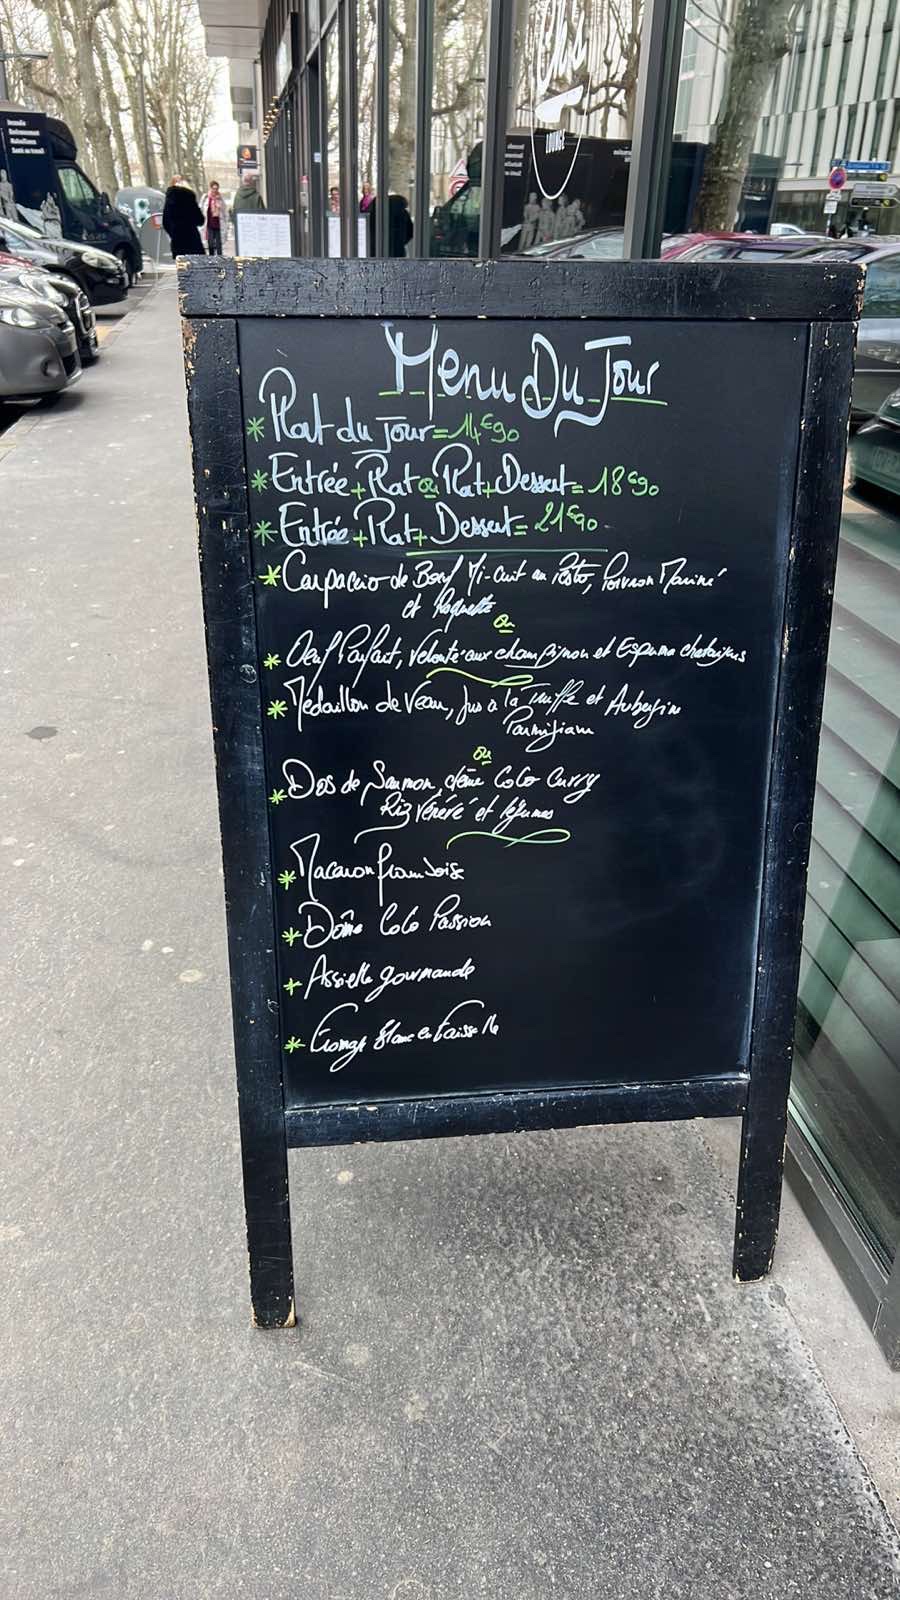 Menu Du Jour
* Plat du jour = 14€90
* Entrée + Plat ou Plat + Dessert = 18€90
* Entrée + Plat + Dessert = 21€90
* Carpaccio de Bœuf Mi-cuit au Pesto, Poivron Mariné
et Roquette
ou
* Oeuf Parfait, velouté aux champignon et Espuma chataigns
* Médaillon de Veau, jus à la Truffe et Aubergin
Parmigiana
ou
* Dos de Saumon, crème Coco Curry
Riz Vénéré et légumes
* Macaron framboise
* Dôme Coco Passion
* Assiette gourmande
* Fromage blanc en Faisselle
LOUNGE
Incendie
Environnement
Malveillance
Santé au travail